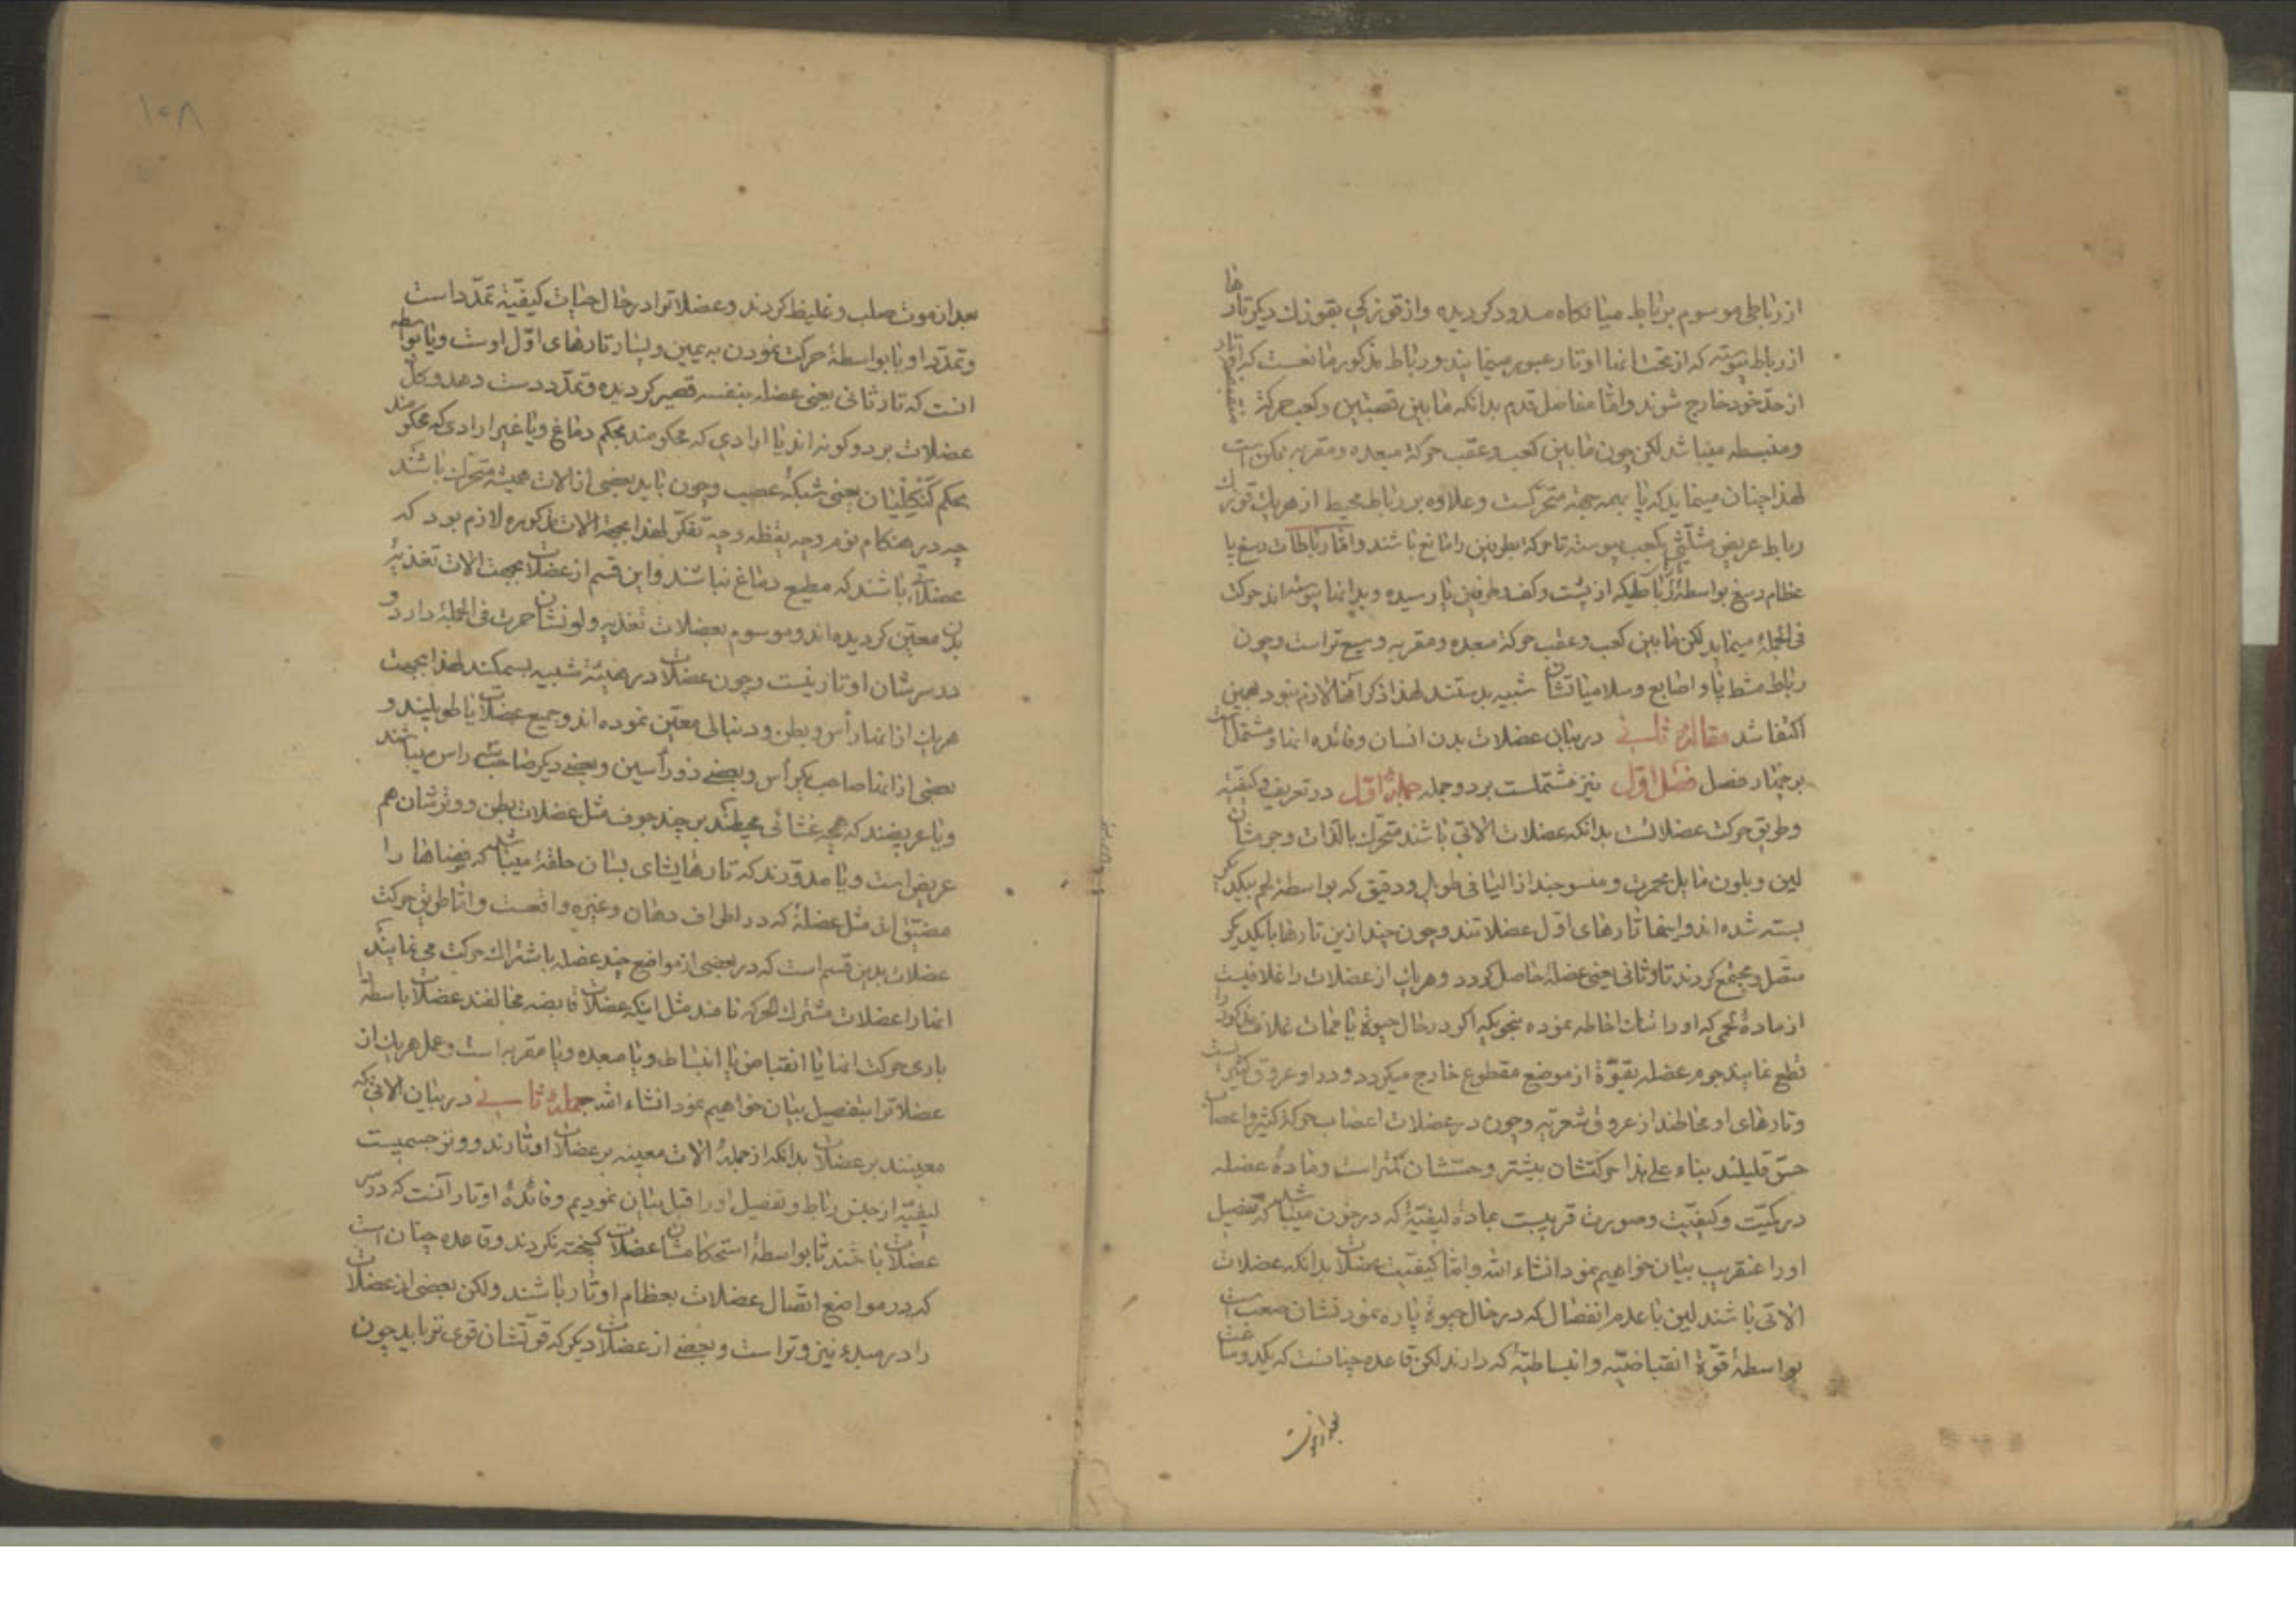 از رباطی موسوم برباط میانکاه مسدود کردیده و از قوزکی بقوزك دیکر تارها
از رباط پیوسته که از تحت انها اوتار عبور مینمایند و رباط مذکور مانعست که اوتار
از حدّ خود خارج شوند و امّا مفاصل قدم بدانکه مابین قصبتین و کعب حرکة
و منبسطه میباشد لکن چون مابین کعب و عقب حرکة مبعده و مقربه ممکن است
لهذا چنان مینماید که پا بهمه جهة متحرّکست و علاوه بر رباط محیط از هریك قوزك
رباط عریض مثلّثی بکعب پیوسته تا حرکة بطرفین را مانع باشند و امّا رباطات رسغ پا
عظام رسغ بواسطهٔ رباطیکه از پشت و کف و طرفین پا رسیده و بدانها پیوسته اند حرکت
فی الجملهٔ مینماید لکن مابین کعب و عقب حرکة مبعده و مقربه وسیع تر است و چون
رباط مشط پا و اصابع و سلامیاتشان شبیه بدستند لهذا ذکر آنها لازم نبود بهمین
اکتفا شد مقالهٔ ثانی در بیان عضلات بدن انسان و فائده انها و مشتمل است
بر چهار فصل فصل اوّل نیز مشتملست بر دو جمله جملهٔ اوّل در تعریف و کیفیّة
و طریق حرکت عضلاتست بدانکه عضلات الاتی باشند متحرّك بالذّات و جرمشان
لین و بلون مایل بحمرت و منسوجند از الیافی طویل و دقیق که بواسطهٔ لحم بیکدیکر
بسته شده اند و اینها تارهای اوّل عضلاتند و چون چند از ین تارها با یکدیکر
متّصل و مجتمع کردند تار ثانی یعنی عضلهٔ حاصل کردد و هریك از عضلات را غلافیست
از مادهٔ لحمی که او را بتمامه احاطه نموده بنحویکه اکر در حال حیوة یا ممات غلاف مذکور را
قطع نمایند جرم عضله بقوّة از موضع مقطوع خارج میکردد و در او عروق کثیر است
و تارهای او محاطند از عروق شعریّه و چون در عضلات اعصاب حرکة کثیر و اعصاب
حسّ قلیلند بناء علی هذا حرکتشان بیشتر و حسّشان کمتر است و مادهٔ عضله
در کمیّت و کیفیّت و صورت قریبست بمادهٔ لیفیّهٔ که در خون میباشد که تفصیل
او را عنقریب بیان خواهیم نمود انشاء الله و امّا کیفیّت عضلات بدانکه عضلات
الاتی باشند لین با عدم انفصال که در حال حیوة پاره نمودنشان صعب است
بواسطهٔ قوّة انقباضیّه و انبساطیّهٔ که دارند لکن قاعده چنانست که یکدو ساعت
بعد از موت
۱۰۸
بعد از موت صلب و غلیظ کردند و عضلاترا در حال حیات کیفیّة تمدّد است
و تمدّد او یا بواسطهٔ حرکت نمودن به یمین و یسار تارهای اوّل اوست و یا بواسطه
انست که تار ثانی یعنی عضله بنفسه قصیر کردیده و تمدّد دست دهد و کل
عضلات بر دو کونه اند یا ارادی که محکومند بحکم دماغ و یا غیر ارادی که محکومند
بحکم کنکلیان یعنی شبکهٔ عصب و چون باید بعضی از الات همیشه متحرّك باشند
چه در هنکام نوم و چه یقظه و چه تفکّر لهذا بجهة الات مذکوره لازم بود که
عضلاتی باشند که مطیع دماغ نباشند و این قسم از عضلات بجهت الات تغذیهٔ
بدن معیّن کردیده اند و موسوم بعضلات تغذیه و لونشان حمرت فی الجملهٔ دارد و
در سرشان اوتار نیست و چون عضلات در هیئة شبیه بسمکند لهذا بجهت
هریك از انها رأس و بطن و دنبالی معیّن نموده اند و جمیع عضلات یا طویلند و
بعضی از انها صاحب یکرأس و بعضی ذو رأسین و بعضی دیکر صاحب سه راس میباشند
و یا عریضند که همچه غشائی محیطند بر چند جوف مثل عضلات بطن و وترشان هم
عریض است و یا مدوّرند که تارهایشای بسان حلقهٔ میباشد که فضاها را
مضیّق اند مثل عضلهٔ که در اطراف دهان و غیره واقعست و امّا طریق حرکت
عضلات بدین قسم است که در بعضی از مواضع چند عضله باشتراك حرکت می نمایند
انها را عضلات مشترك الحرکه نامند مثل اینکه عضلات قابضه مخالفند عضلات باسطه را
باری حرکت انها یا انقباض یا انبساط و یا مبعده و یا مقربه است و عمل هریك از
عضلاترا بتفصیل بیان خواهیم نمود انشاء الله جملهٔ ثانی در بیان الاتی که
معینند بر عضلات بدانکه از جملهٔ الات معینه بر عضلات اوتارند و وتر جسمیست
لیفیّه از جنس رباط و تفصیل او را قبل بیان نمودیم و فائدهٔ اوتار آنست که در سر
عضلات باشند تا بواسطهٔ استحکامشان عضلات کسیخته نکردند و قاعده چنان است
که در مواضع اتّصال عضلات بعظام اوتار باشند ولکن بعضی از عضلات
را در مبدء نیز وتر است و بعضی از عضلات دیکر که قوّتشان قوی تر باید چون